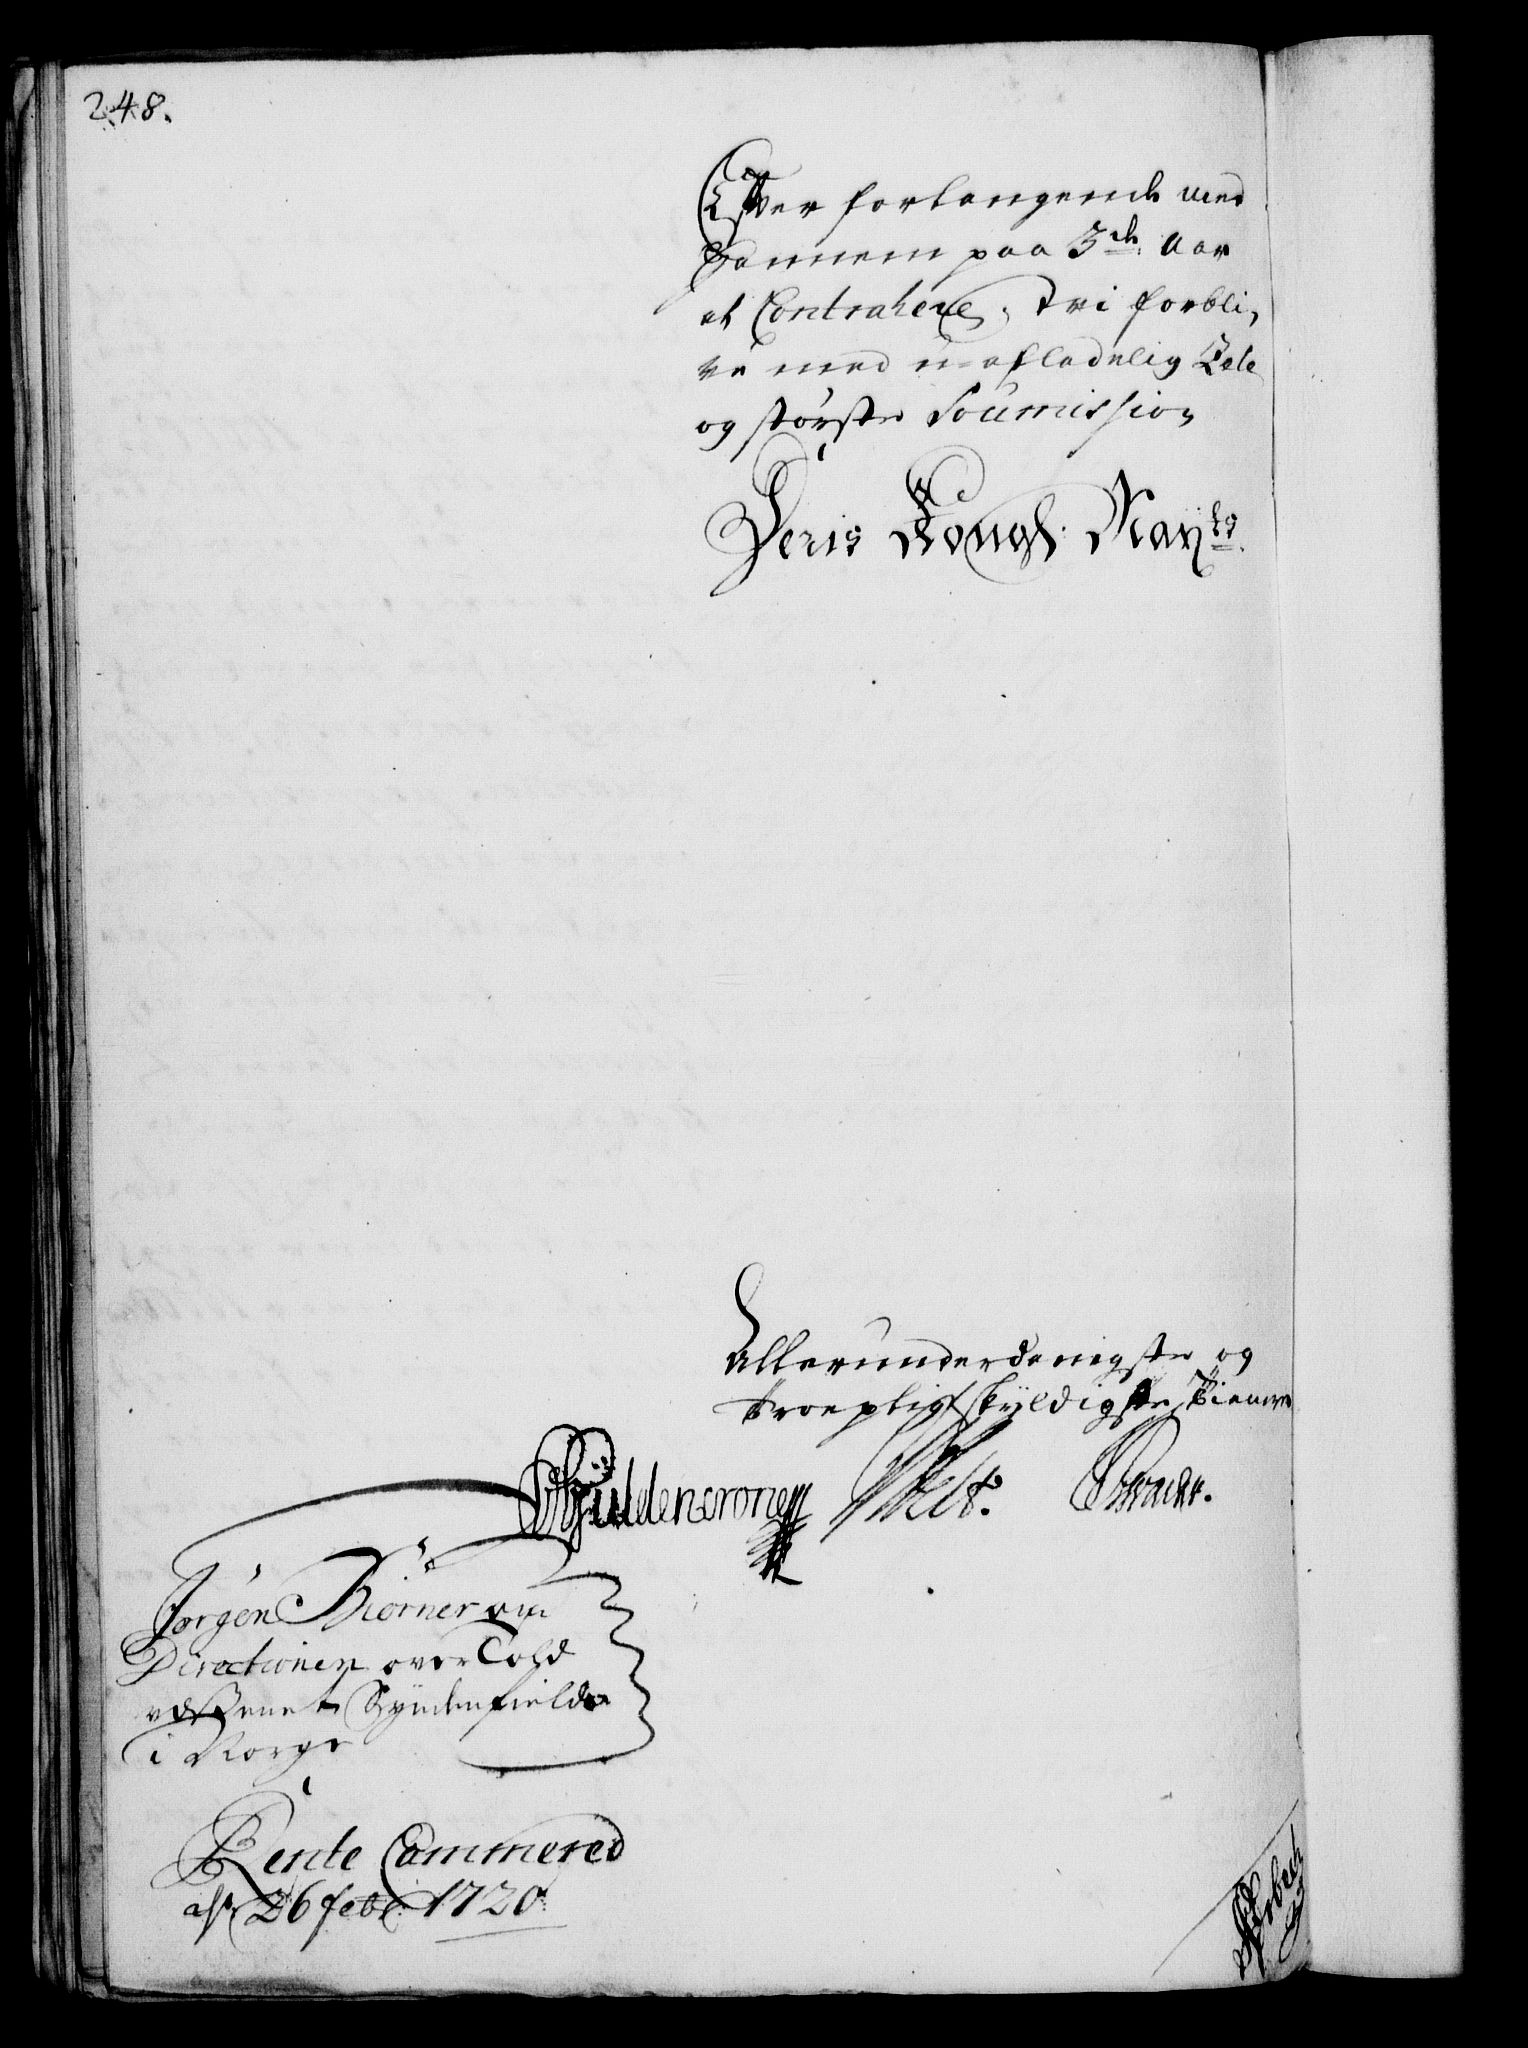 248.
Efter forlangende med
hannem paa 3de Aar
at Contrahere, Wi forbli,
ve med u-afladelig Zele
og störste Soumission
Deris Kongl: Mayts
Allerunderdanigste og
troepligtskyldigste tienere
Gÿldencrone
Jörgen Biörner om
Directionen over Told
væssenet Syndenfields
i Norge
Rente Cammered
d 26 febr: 1720